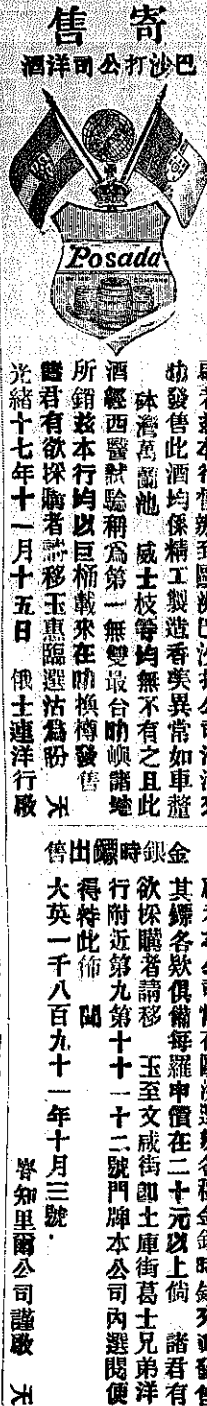 寄售
巴沙打公司洋酒
Posada
啟者茲本行情辦到歐洲巴沙打公司洋酒來
叻發售此酒均係精工製造香美異常如車釐
砵灣萬蘭池 威士枝等均無不有之且此
酒經西醫試驗稱為第一無雙最合叻嶼諸埠
所銷茲本行均以巨桶載來在叻換樽發售
諸君有欲採購者請移玉惠臨選沽為盼 天
光緒十七年十一月十五日 俄士連洋行啟
金銀時鏢出售
啟者本公司常在歐洲選辦各種金銀時鏢來叻發售
其鏢各欵俱備每羅申價在二十元以上倘 諸君有
欲採購者請移 玉至文咸街即土庫街葛士兄弟洋
行附近第九第十十一十二號門牌本公司內選閱便
得特此佈 聞
大英一千八百九十一年十月三號
知里爾公司謹啟 天